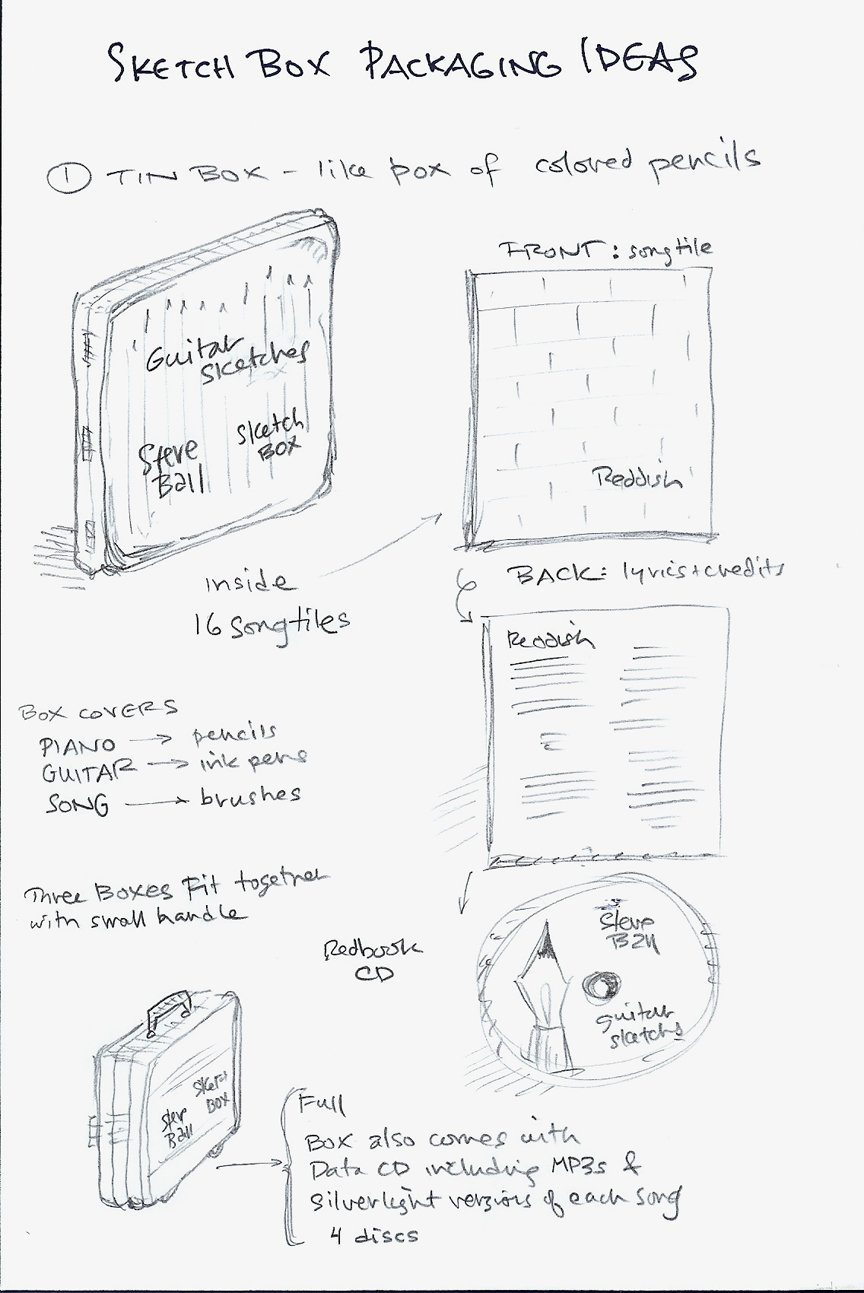 SKETCH BOX PACKAGING IDEAS
1 TIN BOX - like box of colored pencils
FRONT: songtile
Guitar
Sketches
Steve
Ball
Sketch
BOX
Reddish
inside
16 songtiles
BACK: lyrics+credits
Reddish
BOX COVERS
PIANO → pencils
GUITAR → ink pens
SONG → brushes
Three Boxes Fit together
with small handle
Redbook
CD
Steve
Ball
Guitar
sketches
Steve
Ball
Sketch
BOX
Full
Box also comes with
Data CD including MP3s &
Silverlight versions of each song
4 discs